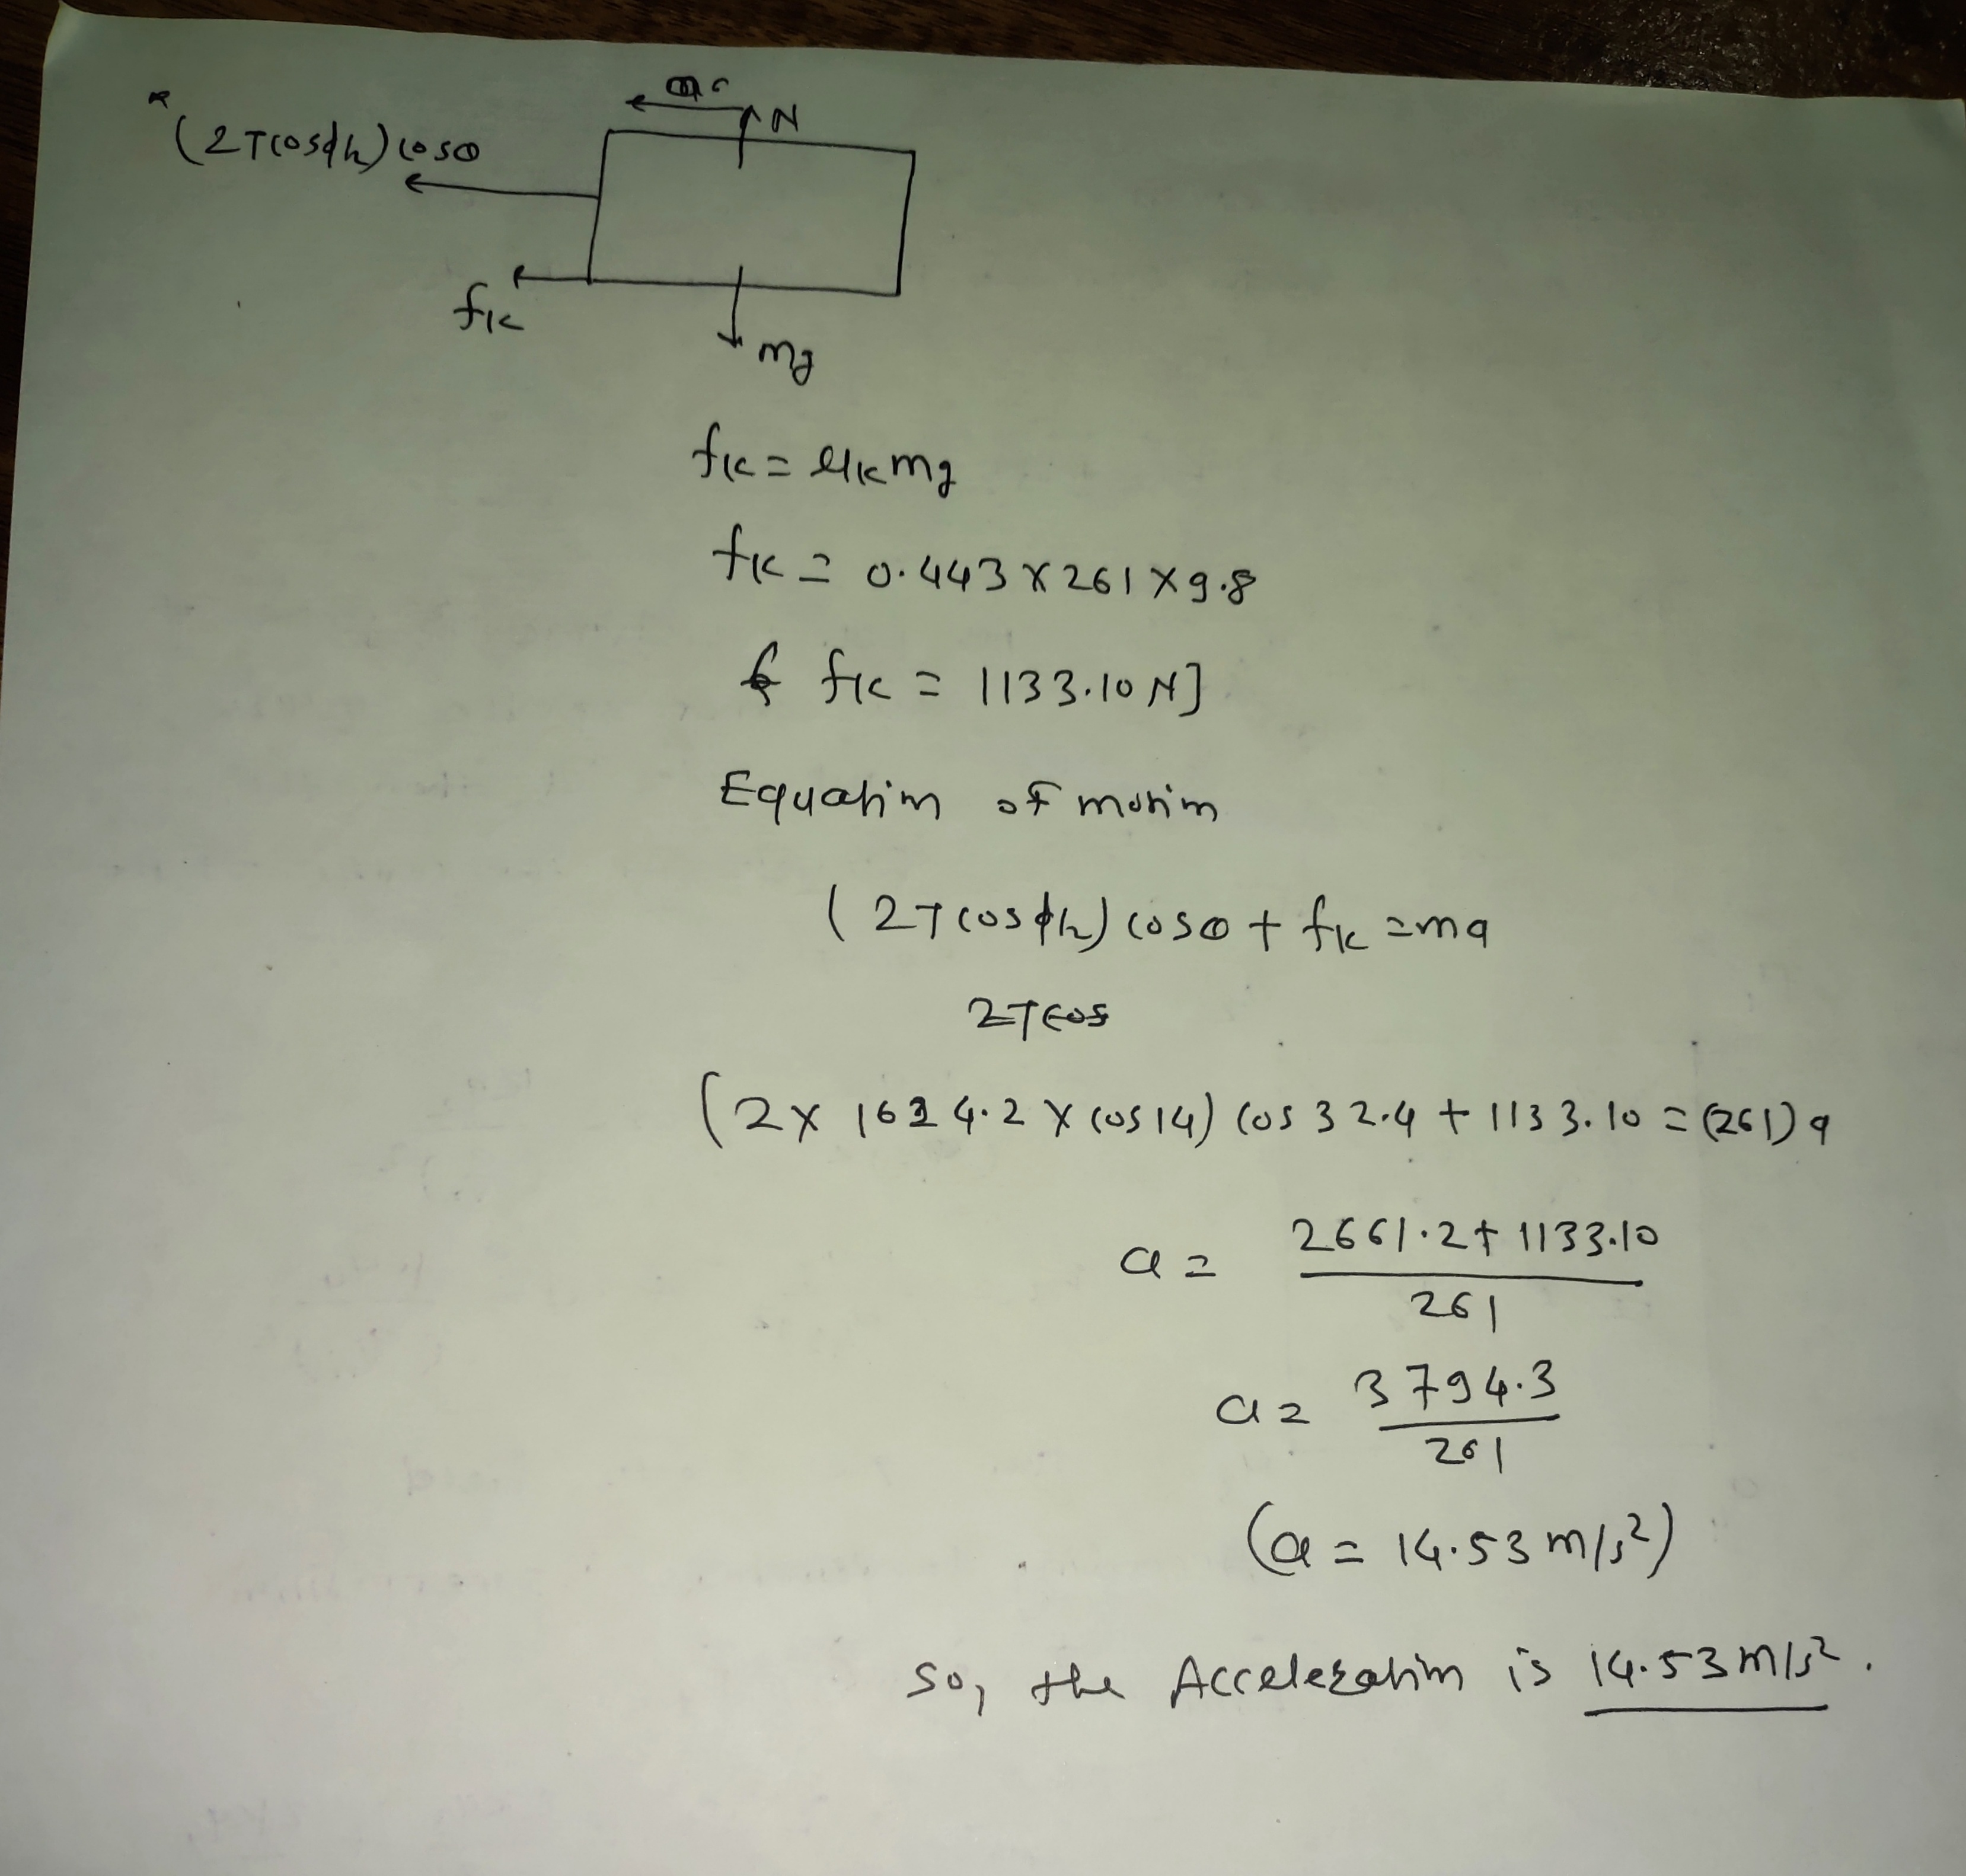 a
N
(2Tcosϕ/2) cosθ
fk
mg
fk = μk mg
fk = 0.443 × 261 × 9.8
fk = 1133.10 N]
Equation of motion
(2Tcosϕ/2) cosθ + fk = ma
2Tcos
(2 × 1624.2 × cos14) cos 32.4 + 1133.10 = (261) a
a = 2661.2 + 1133.10 / 261
a = 3794.3 / 261
(a = 14.53 m/s²)
So, the Acceleration is 14.53 m/s².